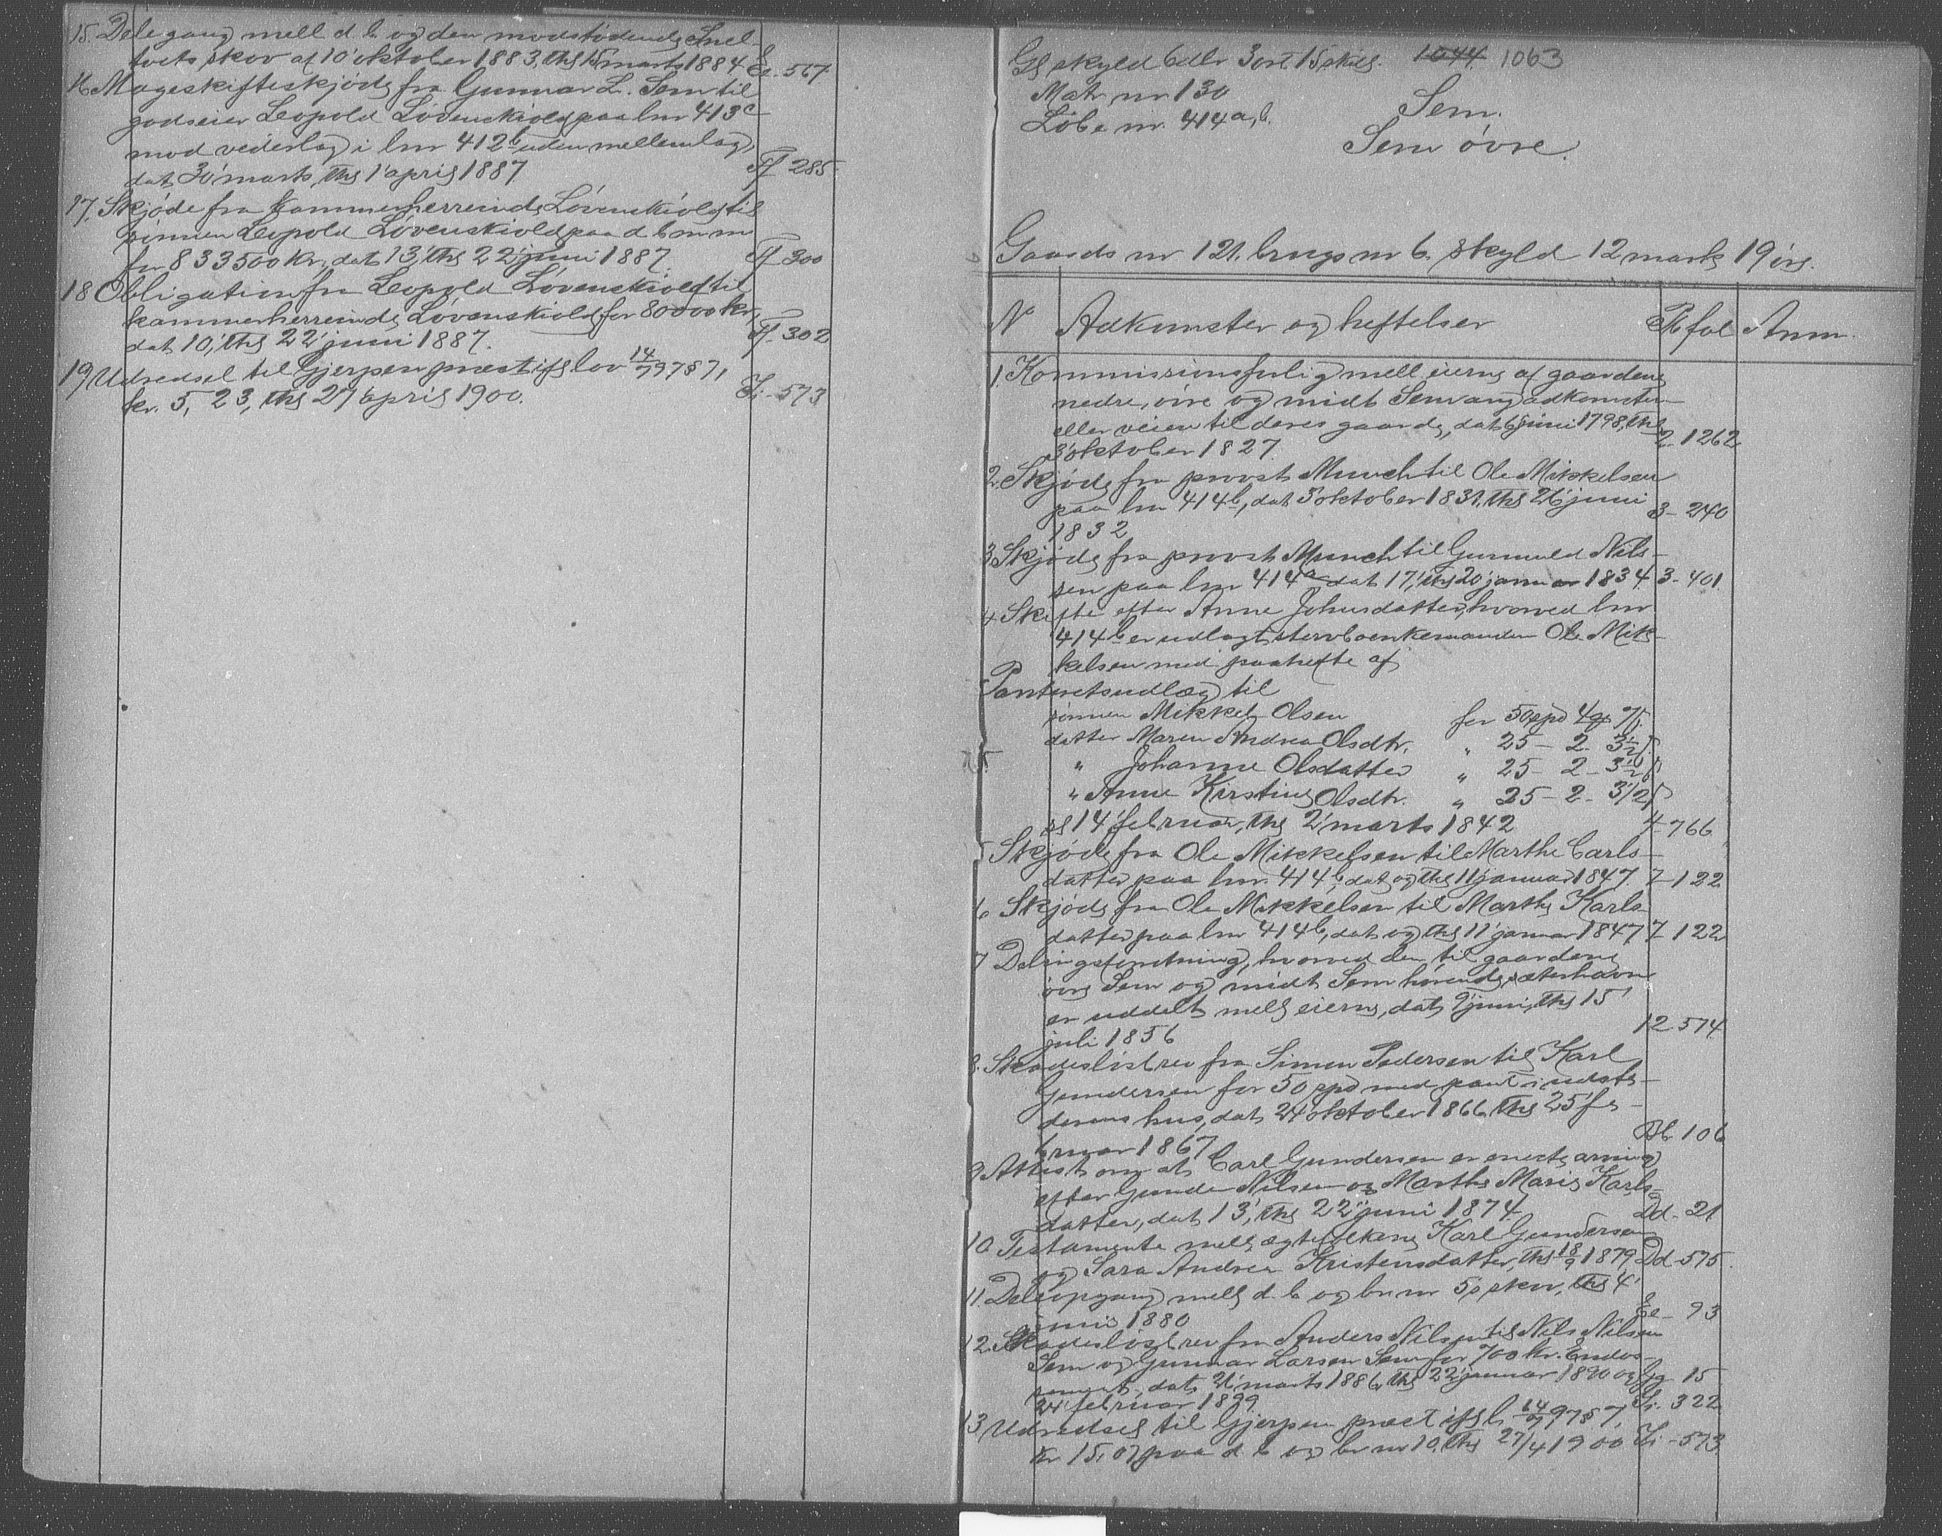 15. Delegang mell d b og den modstødende Snel-
tvets skov af 10' oktober 1883, thl 15' marts 1884 Ee-567
16 Mageskifteskjøde fra Gunnar L. Sem til
godseier Leopold Løvenskiold paa lnr 413c
mod vederlag i lnr 412b uden mellemlag,
dat 30' marts, thl 1' april 1887 Ff 285
17. Skjøde fra kammerherreinde Løvenskiold til
sønnen Leopold Løvenskiold paa d b m m
for 833500 kr, dat 13', thl 22' juni 1887. Ff 300
18 Obligation fra Leopold Løvenskiold til
kammerherreinde Løvenskiold for 80000 kr,
dat 10', thl 22' juni 1887. Ff. 302
19 Udredsel til Gjerpen præst ifl lov 14/7 97 § 7,
kr. 5, 23, thl 27' april 1900. Ii-573
Gl skyld 6 dlr 3 ort 15 skill. 1044. 1063
Matr nr 130
Løbe nr. 414a, b.
Sem.
Sem øvre.
Gaards nr 121. brugs nr 6. skyld 12 mark 19 øre.
N Adkomster og heftelser P fol Anm.
1. Kommissionsforlig mell eierne af gaardene
nedre, øvre og midt Sem ang adkomsten
eller veien til deres gaarde, dat 6' juni 1798, thl
3' oktober 1827 2-1262
2. Skjøde fra provst Munch til Ole Mikkelsen
paa lnr 414b, dat 3' oktober 1831, thl 26' juni
1832 3-240
3 Skjøde fra provst Munch til Gunnuld Nils-
sen paa lnr 414a dat 17', thl 20' januar 1834 3-401
4 Skifte efter Anne Johnsdatter, hvorved lnr
414b er udlagt stervboenkemanden Ole Mik-
kelsen med paahefte af
Panteretsudlæg til
sønnen Mikkel Olsen for 50 spd 4 ort 7 ſ.
datter Maren Andrea Olsdtr. " 25 - 2 - 3½ ſ.
" Johanne Olsdatter " 25 - 2 - 3½ ſ
" Anne Kirstine Olsdtr. " 25 - 2 - 3½ ſ
sl 14' februar, thl 2' marts 1842 4-766
5 Skjøde fra Ole Mikkelsen til Marthe Carls-
datter paa lnr. 414b, dat og thl 11' januar 1847. 7-122
6 Skjøde fra Ole Mikkelsen til Marthe Karls
datter paa lnr 414b, dat og thl 11' januar 1847 7-122
7 Delingsforretning, hvorved den til gaardene
øvre Sem og midt Sem hørende sæterhavn
er uddelt mell eierne, dat 9' juni, thl 15'
juli 1856 12-574
8. Skadesløsbrev fra Simen Pedersen til Karl
Gundersen for 50 spd med pant i udste-
derens hus, dat 24' oktober 1866, thl 25' fe-
bruar 1867 Bb 106
9 Attest om at Carl Gundersen er eneste arving
efter Gunder Nilsen og Marthe Marie Karls-
datter, dat 13', thl 22' juni 1874. Dd-21
10. Testamente mell ægtefolkene Karl Gundersen
og Sara Andrea Kristensdatter, thl 18/9 1879 Dd-575
11. Deleopgang mell d. b og br nr 5's skov, thl 4'
juni 1880 Ee-93
12. Skadesløsbrev fra Anders Nilsen til Nils Nilsen
Sem og Gunnar Larsen Sem for 700 kr. Endos-
seret, dat 26' marts 1886, thl 22' januar 1890 og Gg 15
24' februar 1899 Ii. 322
13 Udredsel til Gjerpen præst ifl l. 14/7 97 § 7,
kr 15, 07 paa d b og br nr 10, thl 27/4 1900 Ii-573